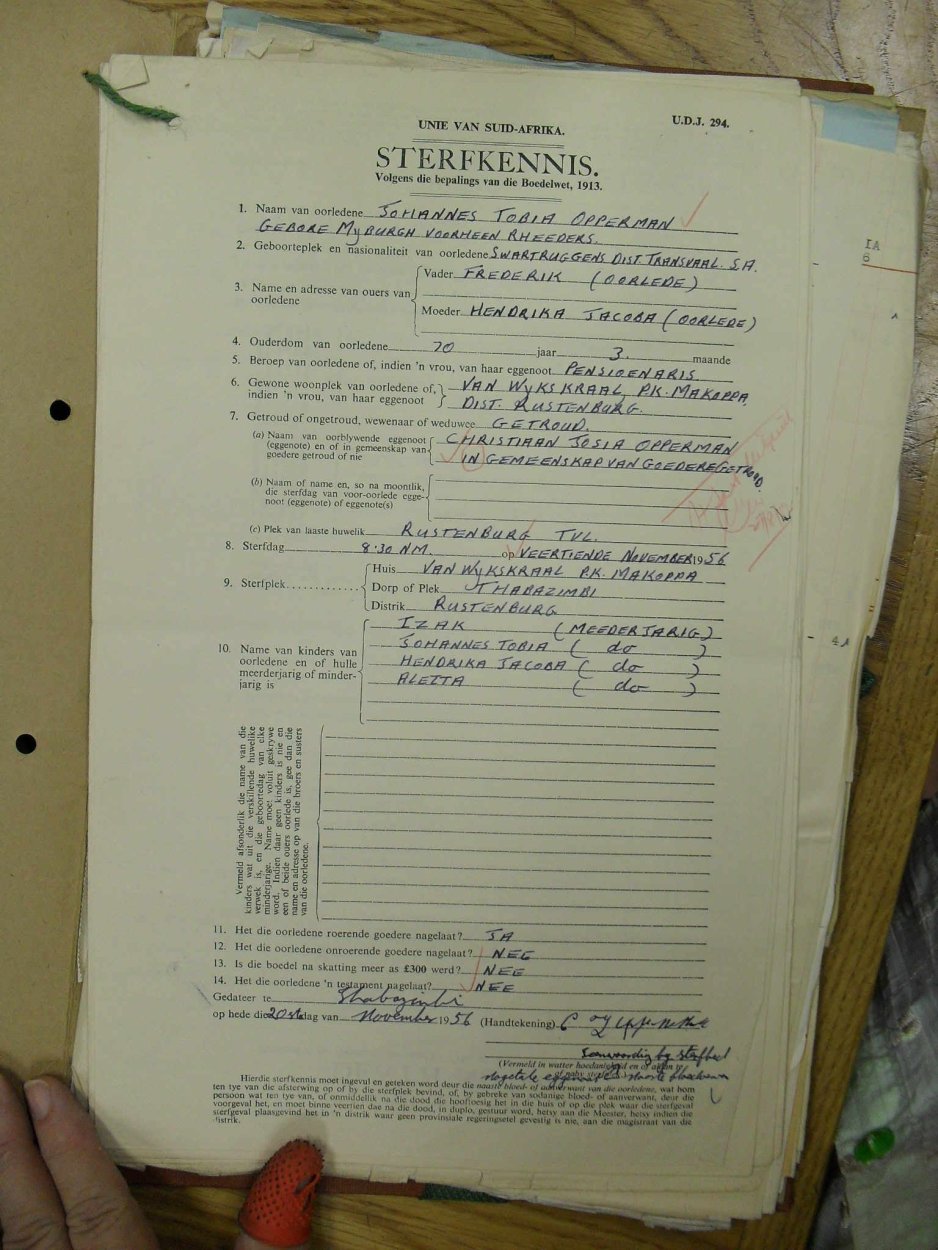 UNIE VAN SUID-AFRIKA.
U.D.J. 294.
STERFKENNIS.
Volgens die bepalings van die Boedelwet, 1913.
1. Naam van oorledene JOHANNES TOBIA OPPERMAN
GEBORE MYBURGH VOORHEEN RHEEDERS.
2. Geboorteplek en nasionaliteit van oorledene SWARTRUGGENS DIST. TRANSVAAL. S.A.
3. Name en adresse van ouers van oorledene
Vader FREDERIK (OORLEDE)
Moeder HENDRIKA JACOBA (OORLEDE)
4. Ouderdom van oorledene 70 jaar 3. maande
5. Beroep van oorledene of, indien 'n vrou, van haar eggenoot PENSIOENARIS
6. Gewone woonplek van oorledene of, VAN WYKSKRAAL, P.K. MAKOPPA,
indien 'n vrou, van haar eggenoot DIST. RUSTENBURG.
7. Getroud of ongetroud, wewenaar of weduwee GETROUD.
(a) Naam van oorblywende eggenoot CHRISTIAAN JOSIA OPPERMAN
(eggenote) en of in gemeenskap van
goedere getroud of nie IN GEMEENSKAP VAN GOEDERE GETROUD.
(b) Naam of name en, so na moontlik,
die sterfdag van voor-oorlede egge-
noot (eggenote) of eggenote(s)
(c) Plek van laaste huwelik RUSTENBURG TVL.
8. Sterfdag 8.30 NM. op VEERTIENDE NOVEMBER 1956
9. Sterfplek
Huis VAN WYKSKRAAL P.K. MAKOPPA
Dorp of Plek THABAZIMBI
Distrik RUSTENBURG
10. Name van kinders van
oorledene en of hulle
meerderjarig of minder-
jarig is
IZAK (MEEDERJARIG)
JOHANNES TOBIA ( do )
HENDRIKA JACOBA ( do )
ALETTA ( do )
Vermeld afsonderlik die name van die
kinders wat uit die verskillende huwelike
verwek is, en die geboortedag van elke
minderjarige. Name moet voluit geskrywe
word. Indien daar geen kinders is nie en
een of beide ouers oorlede is, gee dan die
name en adresse op van die broers en susters
van die oorledene.
11. Het die oorledene roerende goedere nagelaat? JA
12. Het die oorledene onroerende goedere nagelaat? NEE
13. Is die boedel na skatting meer as £300 werd? NEE
14. Het die oorledene 'n testament nagelaat? NEE
Gedateer te Thabazimbi
op hede die 20ste dag van November 1956 (Handtekening)
(Vermeld in watter hoedanigheid en of
Hierdie sterfkennis moet ingevul en geteken word deur die naaste bloed- of aanverwant van die oorledene, wat hom
ten tye van die afsterwing op of by die sterfplek bevind, of, by gebreke van sodanige bloed- of aanverwant, deur die
persoon wat ten tye van, of onmiddellik na die dood die hooftoesig het in die huis of op die plek waar die sterfgeval
voorgeval het, en moet binne veertien dae na die dood, in duplo, gestuur word, hetsy aan die Meester, hetsy indien die
sterfgeval plaasgevind het in 'n distrik waar geen provinsiale regeringsetel gevestig is nie, aan die magistraat van die
distrik.
IA
6
4